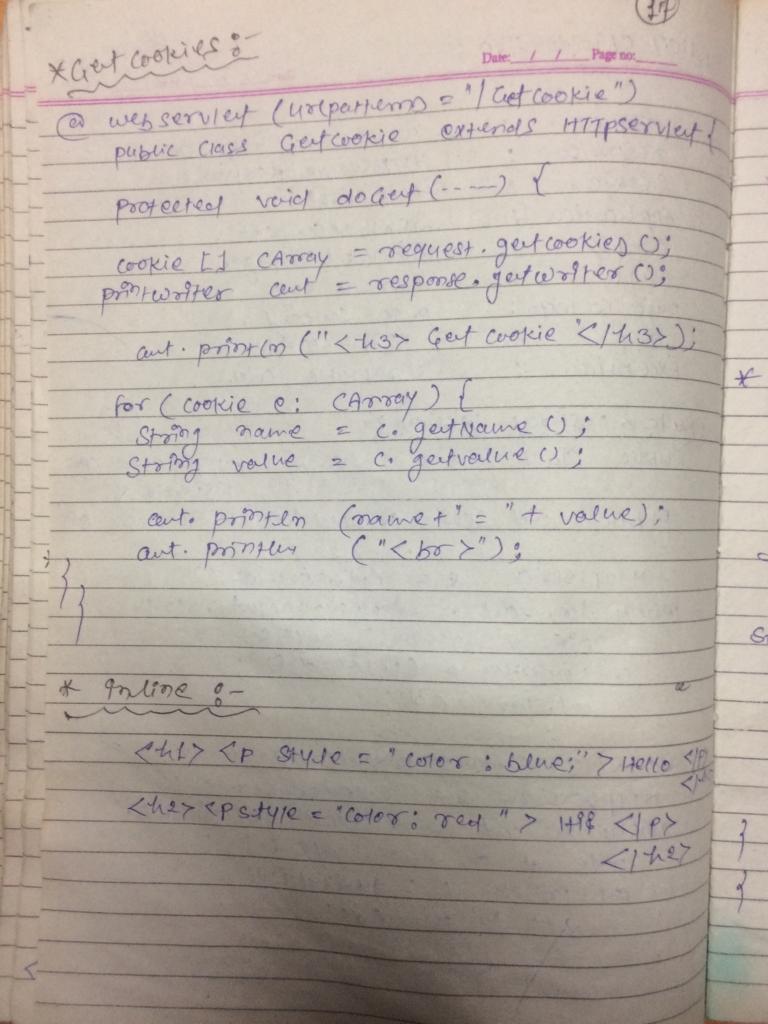 17
* Get Cookies :-
Date: / / Page no:
@ webservlet (urlpatterns = "/GetCookie")
public class GetCookie extends HTTpservlet {
protected void doGet (-----) {
cookie [] CArray = request.getcookies ();
printwriter out = response.getwriter ();
out.println ("<h3> Get Cookie "</h3>);
for (cookie c: CArray) {
String name = c.getName ();
String value = c.getvalue ();
out.println (name+" = "+ value);
out.println ("<br>");
}
}
* Inline :-
<h1> <p style = "color : blue;" > Hello </p>
<h2> <p style = "color: red " > Hi </p>
</h2>